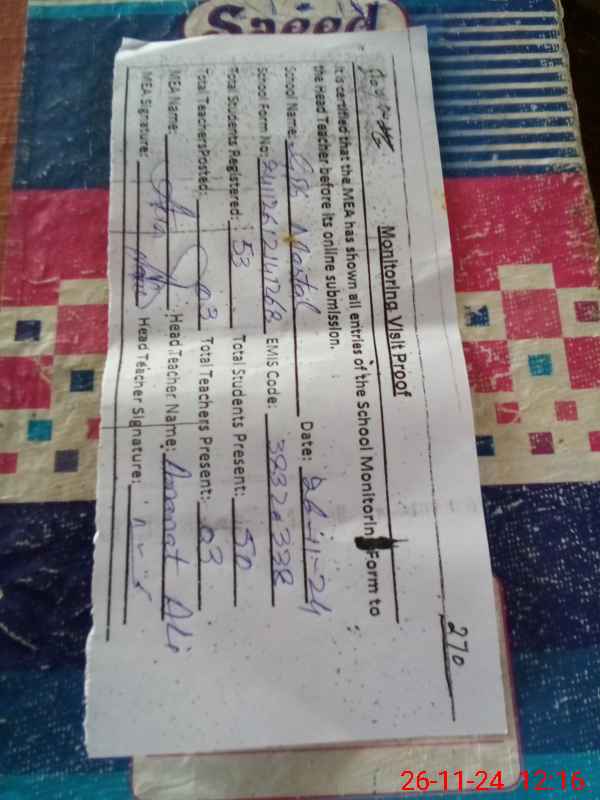 Saeed
270
Monitoring Visit Proof
It is certified that the MEA has shown all entries of the School Monitorin Form to
the Head Teacher before its online submission.
School Name: Date: 26-11-24
School Form No: EMIS Code:
Total Students Registered: 53 Total Students Present: 50
Total TeachersPosted: 03 Total Teachers Present: 03
MEA Name: Head Teacher Name: Amanat Ali
MEA Signature: Head Teacher Signature:
26-11-24 12:16